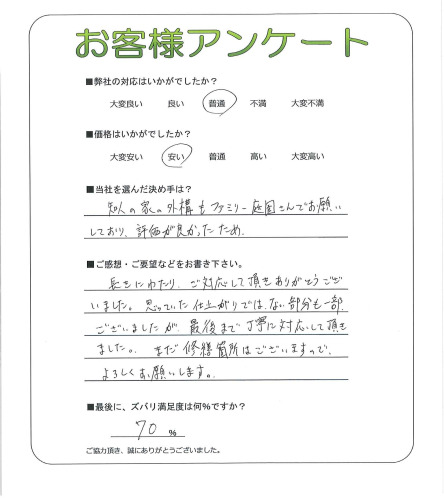 お客様アンケート
■弊社の対応はいかがでしたか?
大変良い 良い 普通 不満 大変不満
■価格はいかがでしたか?
大変安い 安い 普通 高い 大変高い
■当社を選んだ決め手は?
知人の家の外構もファミリー庭園さんでお願い
しており、評価が良かったため。
■ご感想・ご要望などをお書き下さい。
長きにわたり、ご対応して頂きありがとうござ
いました。思っていた仕上がりでは、ない部分も一部
ございましたが、最後まで丁寧に対応して頂き
ました。まだ修繕箇所はございますので、
よろしくお願いします。
■最後に、ズバリ満足度は何%ですか?
70 %
ご協力頂き、誠にありがとうございました。